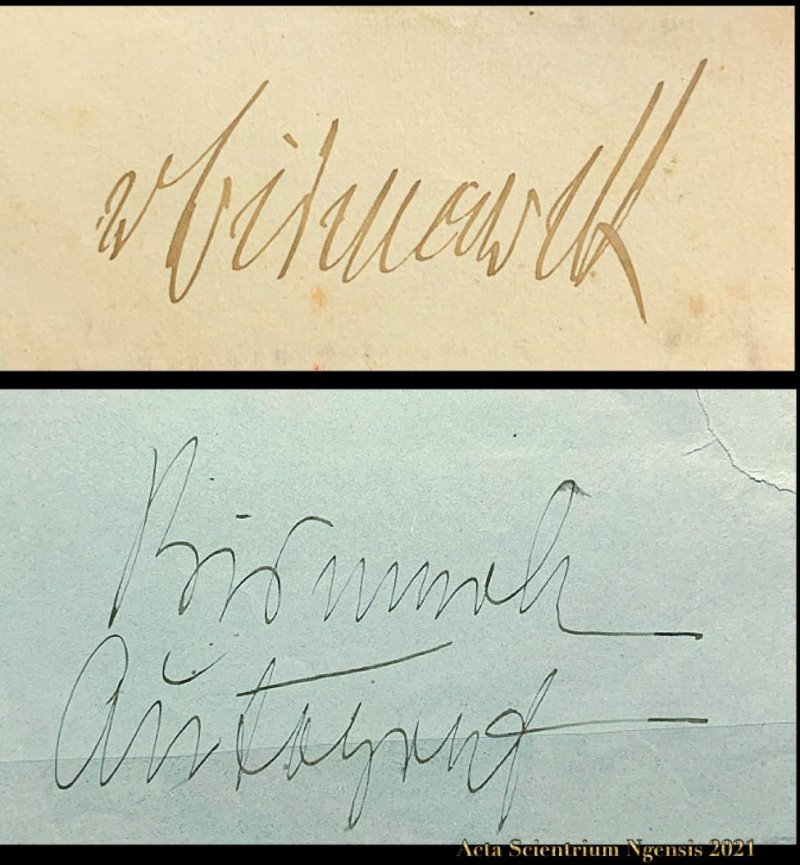 v Bismarck
Bismarck
Autograf
Acta Scientrium Ngensis 2021